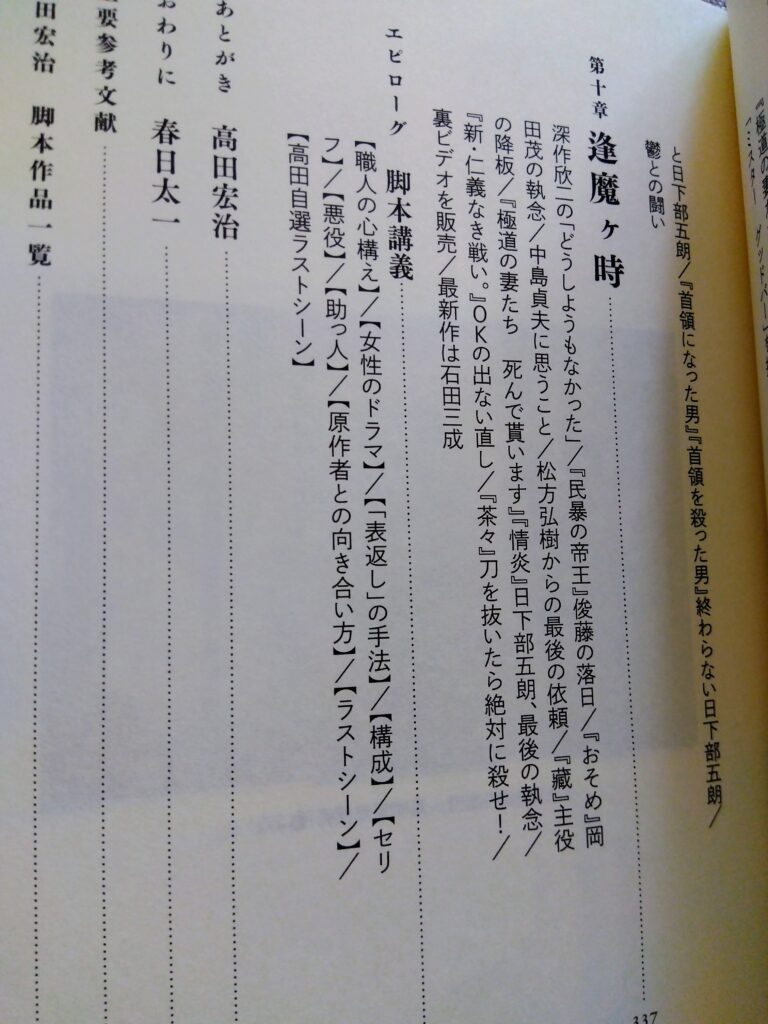 と日下部五朗/『首領になった男』『首領を殺った男』終わらない日下部五朗/
鬱との闘い
第十章 逢魔ヶ時
337
深作欣二の「どうしようもなかった」/『民暴の帝王』俊藤の落日/『おそめ』岡
田茂の執念/中島貞夫に思うこと/松方弘樹からの最後の依頼/『藏』主役
の降板/『極道の妻たち 死んで貰います』『情炎』日下部五朗、最後の執念/
『新・仁義なき戦い。』OKの出ない直し/『茶々』刀を抜いたら絶対に殺せ!/
裏ビデオを販売/最新作は石田三成
エピローグ 脚本講義
【職人の心構え】/【女性のドラマ】/【「表返し」の手法】/【構成】/【セリ
フ】/【悪役】/【助っ人】/【原作者との向き合い方】/【ラストシーン】/
【高田自選ラストシーン】
あとがき 高田宏治
おわりに 春日太一
要参考文献
田宏治 脚本作品一覧